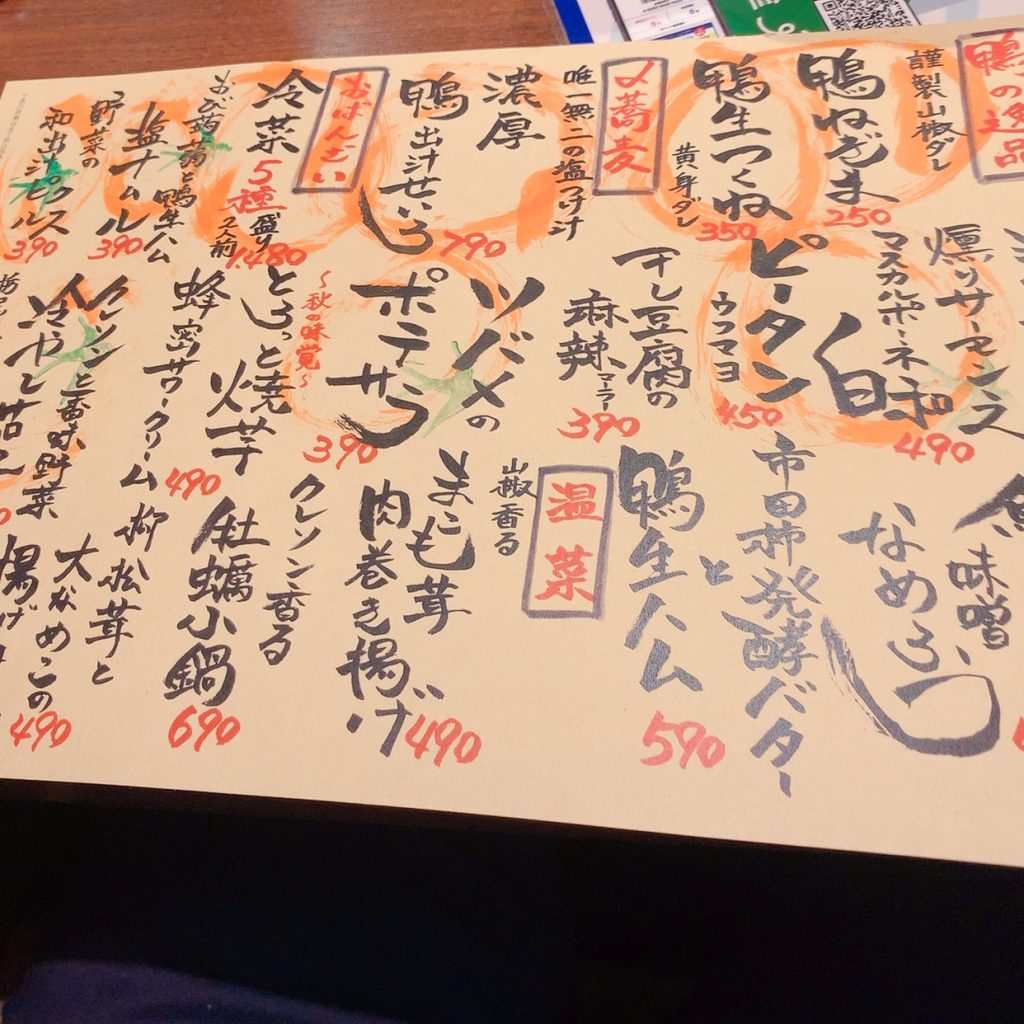 鴨の逸品
謹製山椒ダレ
鴨ねぎま
250
鴨生つくね
黄身ダレ
350
〆蕎麦
唯一無二の塩つけ汁
濃厚
鴨出汁せいろ
790
おばんざい
冷菜5種盛り
2人前
1,480
鴨生ハム
塩ナムル
390
野菜の
和出汁ピクルス
390
燻りサーモン
マスカルポーネ
白和
490
ピータン
ウフマヨ
450
干し豆腐の
麻辣
マーラー
390
ツバメの
ポテサラ
390
〜秋の味覚〜
とろっと焼芋
蜂蜜サワークリーム
490
クレソンと香味野菜
冷やし
味噌
なめろう
市田柿発酵バター
と
鴨生ハム
590
温菜
山椒香る
まこも茸
肉巻き揚げ
490
クレソン香る
牡蠣小鍋
690
柳松茸と
大なめこの
揚げ
490